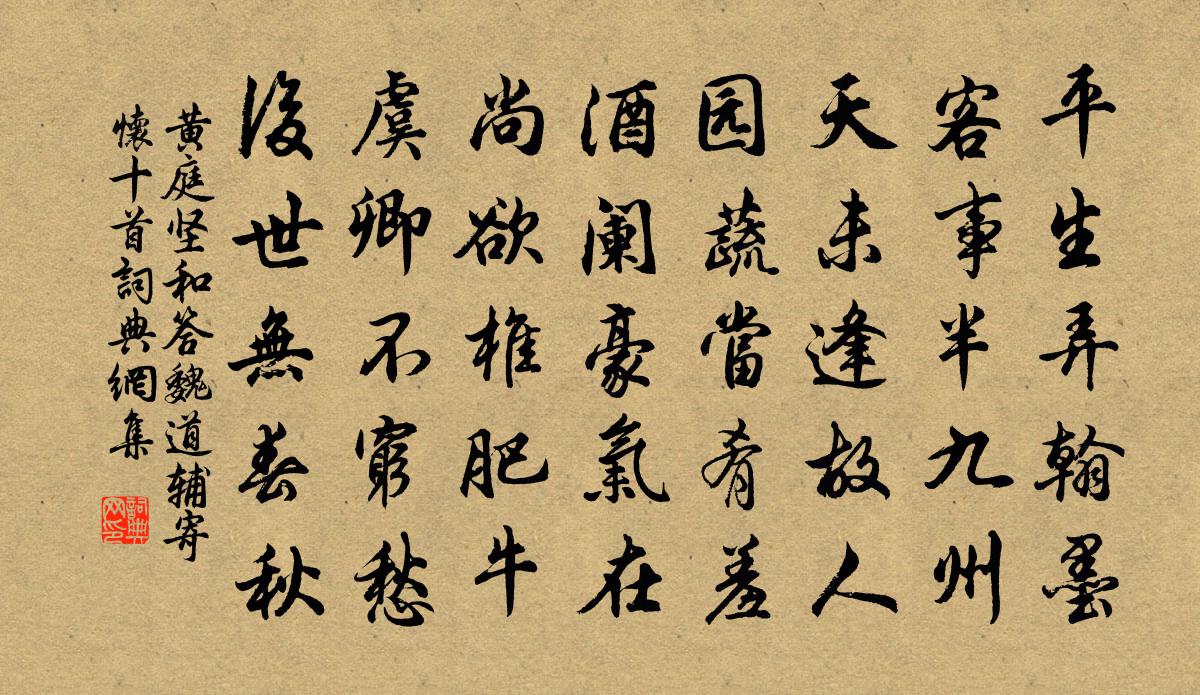 平生弄翰墨
客事半九州
天未逢故人
园蔬當肴羞
酒阑豪氣在
尚欲椎肥牛
虞卿不窮愁
後世無春秋
黄庭坚和答魏道辅寄
懷十首詞典網集
詞典
网印